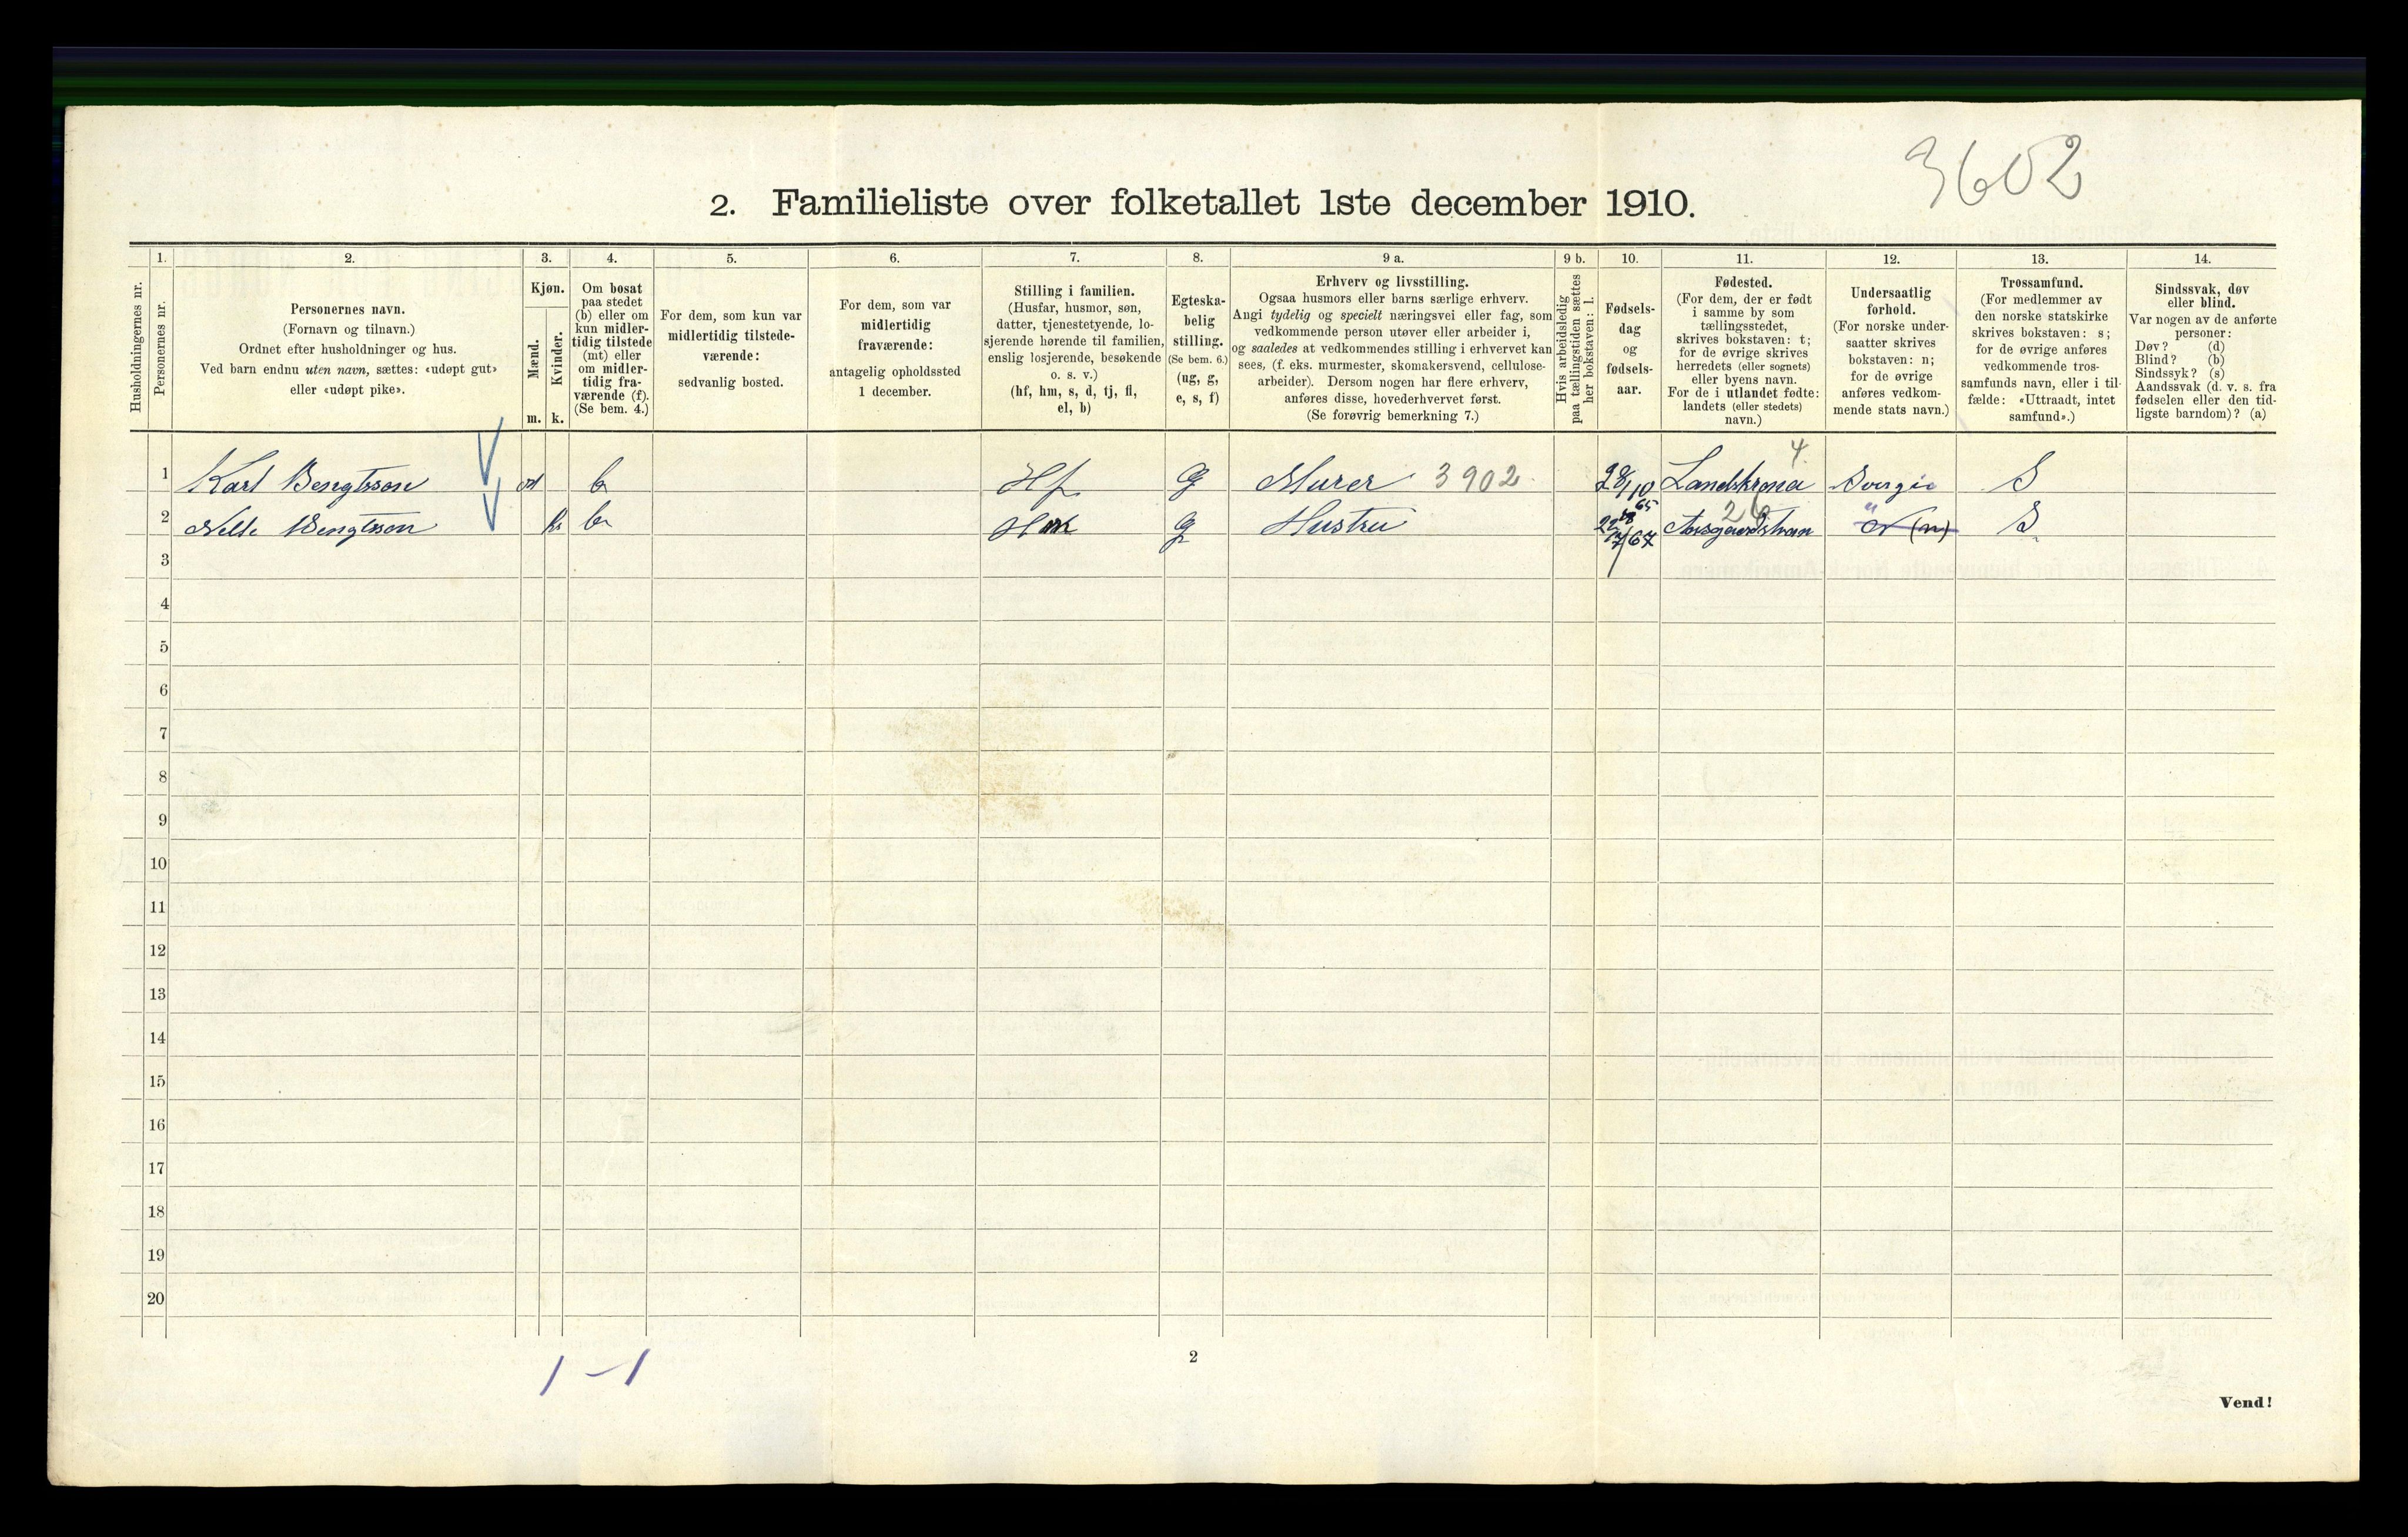 3602
2. Familieliste over folketallet 1ste december 1910.
Husholdningernes nr.
1.
Personernes nr.
2.
Personernes navn.
(Fornavn og tilnavn.)
Ordnet efter husholdninger og hus.
Ved barn endnu uten navn, sættes: «udøpt gut»
eller «udøpt pike».
3.
Kjøn.
Mænd.
m.
Kvinder.
k.
4.
Om bosat
paa stedet
(b) eller om
kun midler-
tidig tilstede
(mt) eller
om midler-
tidig fra-
værende (f).
(Se bem. 4.)
5.
For dem, som kun var
midlertidig tilstede-
værende:
sedvanlig bosted.
6.
For dem, som var
midlertidig
fraværende:
antagelig opholdssted
1 december.
7.
Stilling i familien.
(Husfar, husmor, søn,
datter, tjenestetyende, lo-
sjerende hørende til familien,
enslig losjerende, besøkende
o. s. v.)
(hf, hm, s, d, tj, fl,
el, b)
8.
Egteska-
belig
stilling.
(Se bem. 6.)
(ug, g,
e, s, f)
9 a.
Erhverv og livsstilling.
Ogsaa husmors eller barns særlige erhverv.
Angi tydelig og specielt næringsvei eller fag, som
vedkommende person utøver eller arbeider i,
og saaledes at vedkommendes stilling i erhvervet kan
sees, (f. eks. murmester, skomakersvend, cellulose-
arbeider). Dersom nogen har flere erhverv,
anføres disse, hovederhvervet først.
(Se forøvrig bemerkning 7.)
9 b.
Hvis arbeidsledig
paa tællingstiden sættes
her bokstaven: l.
10.
Fødsels-
dag
og
fødsels-
aar.
11.
Fødested.
(For dem, der er født
i samme by som
tællingsstedet,
skrives bokstaven: t;
for de øvrige skrives
herredets (eller sognets)
eller byens navn.
For de i utlandet fødte:
landets (eller stedets)
navn.)
12.
Undersaatlig
forhold.
(For norske under-
saatter skrives
bokstaven: n;
for de øvrige
anføres vedkom-
mende stats navn.)
13.
Trossamfund.
(For medlemmer av
den norske statskirke
skrives bokstaven: s;
for de øvrige anføres
vedkommende tros-
samfunds navn, eller i til-
fælde: «Uttraadt, intet
samfund».)
14.
Sindssvak, døv
eller blind.
Var nogen av de anførte
personer:
Døv? (d)
Blind? (b)
Sindssyk? (s)
Aandssvak (d. v. s. fra
fødselen eller den tid-
ligste barndom)? (a)
1 Karl Bengtsson m b Hf g Murer 3902 28/10 65 Landskrona 4 Svergie S
2 Bengtsson k b g Hustru 67 Aasgaardstran 26 " N (n) S
3
4
5
6
7
8
9
10
11
12
13
14
15
16
17
18
19
20
1 - 1
2
Vend!